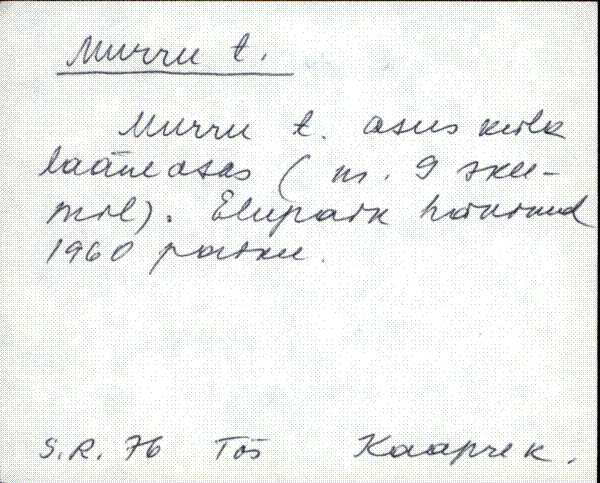 Murru t.
Murru t. asus külk
lääneosas (nr. 9 skee-
mil). Elupaik hävinud
1960 paiku.
S.R. 76 Tõs Kaapre k.